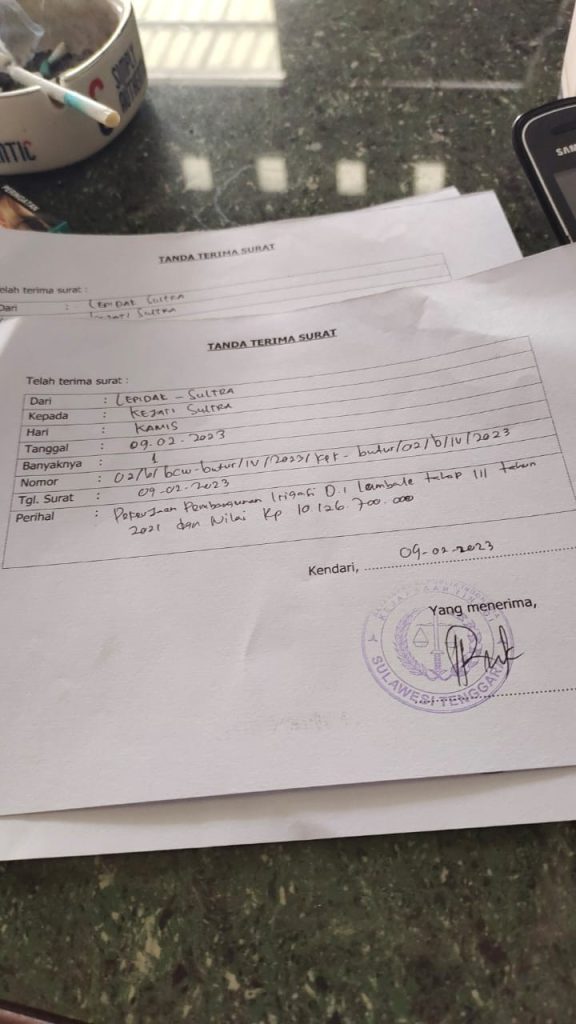 SIMPLY
AUTHENTIC
SAMSUNG
PERINGATAN
TANDA TERIMA SURAT
elah terima surat :
Dari : LEPIDAK SULTRA
Kejati Sultra
TANDA TERIMA SURAT
Telah terima surat :
Dari : LEPIDAK - SULTRA
Kepada : KEJATI SULTRA
Hari : KAMIS
Tanggal : 09.02.2023
Banyaknya : 1
Nomor : 02/b/bcw-butur/IV/2023/kpk-butur/02/b/IV/2023
Tgl. Surat : 09-02-2023
Perihal : Pekerjaan Pembangunan Irigasi D.I Lambale tahap III tahun
2021 dan Nilai Rp 10.126.700.000
Kendari, 09-02-2023
Yang menerima,
KEJAKSAAN TINGGI
SULAWESI TENGGARA